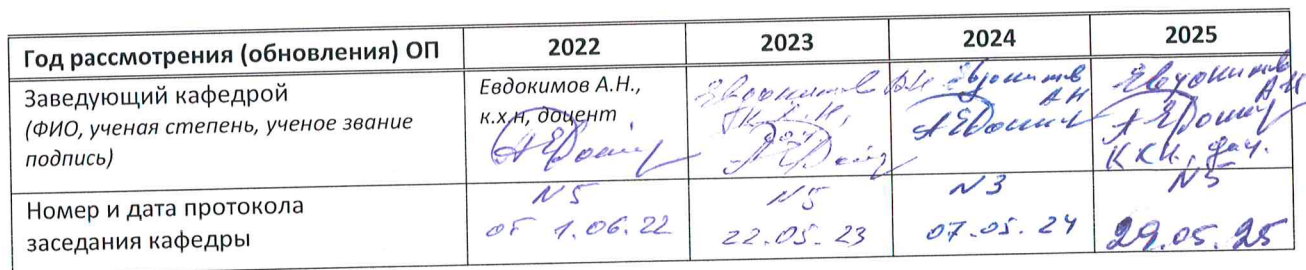 Год рассмотрения (обновления) ОП 2022 2023 2024 2025
Заведующий кафедрой
(ФИО, ученая степень, ученое звание
подпись)
Евдокимов А.Н.,
к.х.н, доцент
Евдокимов АН
к.х.н,
доц.
Евдокимов
АН
Евдокимов
АН
к.х.н., доц.
Номер и дата протокола
заседания кафедры
N5
от 1.06.22
N5
22.05.23
N3
07.05.24
N5
29.05.25